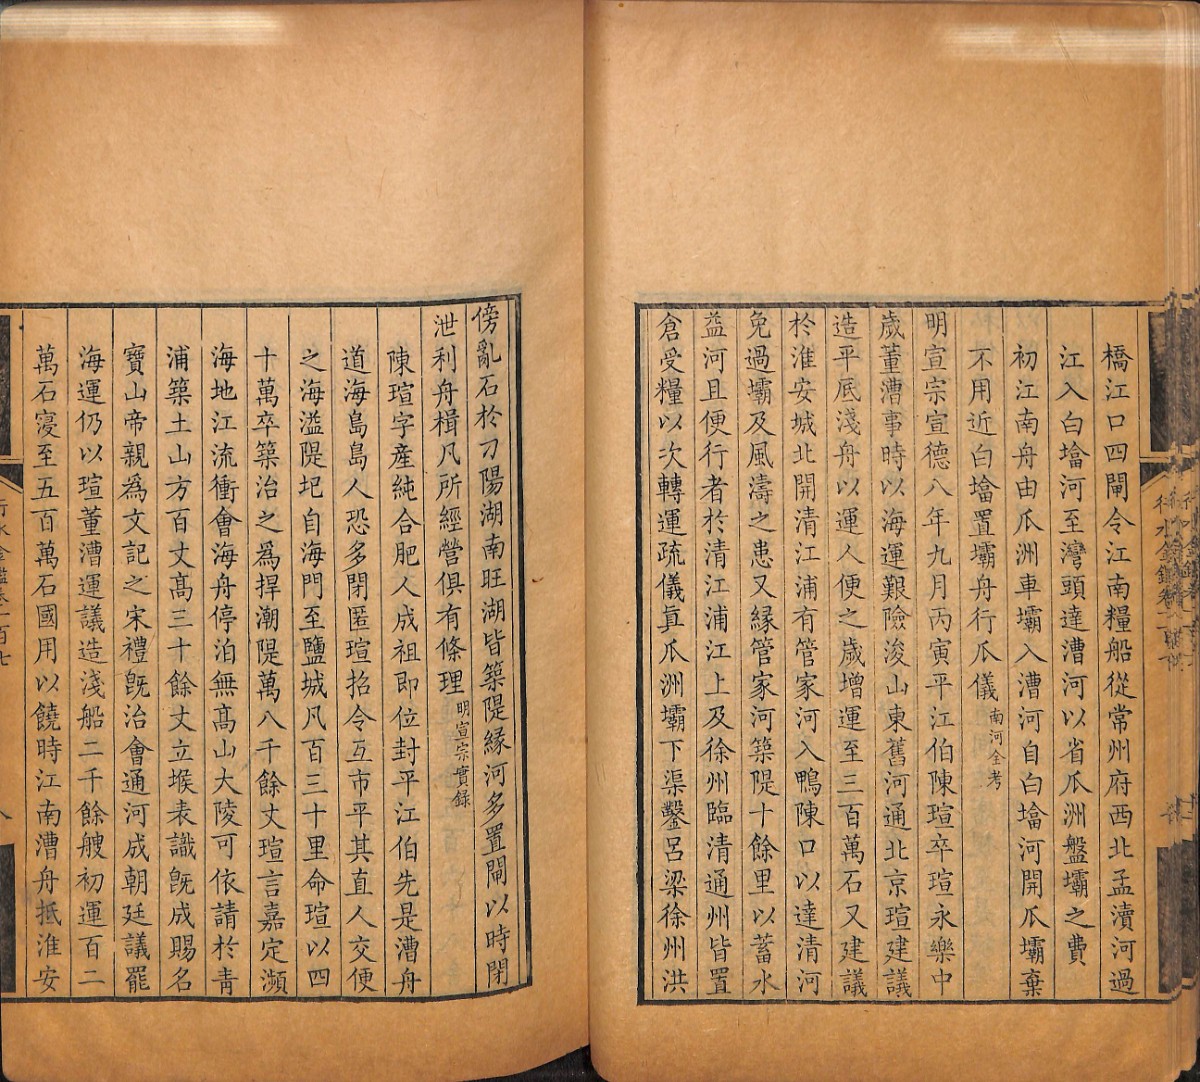 橋江口四閘令江南糧船從常州府西北孟瀆河過
江入白塔河至灣頭達漕河以省瓜洲盤壩之費
初江南舟由瓜洲車壩入漕河自白塔河開瓜壩棄
不用近白塔置壩舟行瓜儀南河全考
明宣宗宣德八年九月丙寅平江伯陳瑄卒瑄永樂中
歲董漕事時以海運艱險浚山東舊河通北京瑄建議
造平底淺舟以運人便之歲增運至三百萬石又建議
於淮安城北開清江浦有管家河入鴨陳口以達清河
免過壩及風濤之患又緣管家河築隄十餘里以蓄水
益河且便行者於清江浦江上及徐州臨清通州皆置
倉受糧以次轉運疏儀真瓜洲壩下渠鑿呂梁徐州洪
傍亂石於刀陽湖南旺湖皆築隄緣河多置閘以時閉
泄利舟楫凡所經營俱有條理明宣宗實錄
陳瑄字產純合肥人成祖即位封平江伯先是漕舟
道海島島人恐多閉匿瑄招令互市平其直人交便
之海溢隄圮自海門至鹽城凡百三十里命瑄以四
十萬卒築治之爲捍潮隄萬八千餘丈瑄言嘉定瀕
海地江流衝會海舟停泊無高山大陵可依請於青
浦築土山方百丈高三十餘丈立堠表識旣成賜名
寶山帝親爲文記之宋禮旣治會通河成朝廷議罷
海運仍以瑄董漕運議造淺船二千餘艘初運百二
萬石寖至五百萬石國用以饒時江南漕舟抵淮安